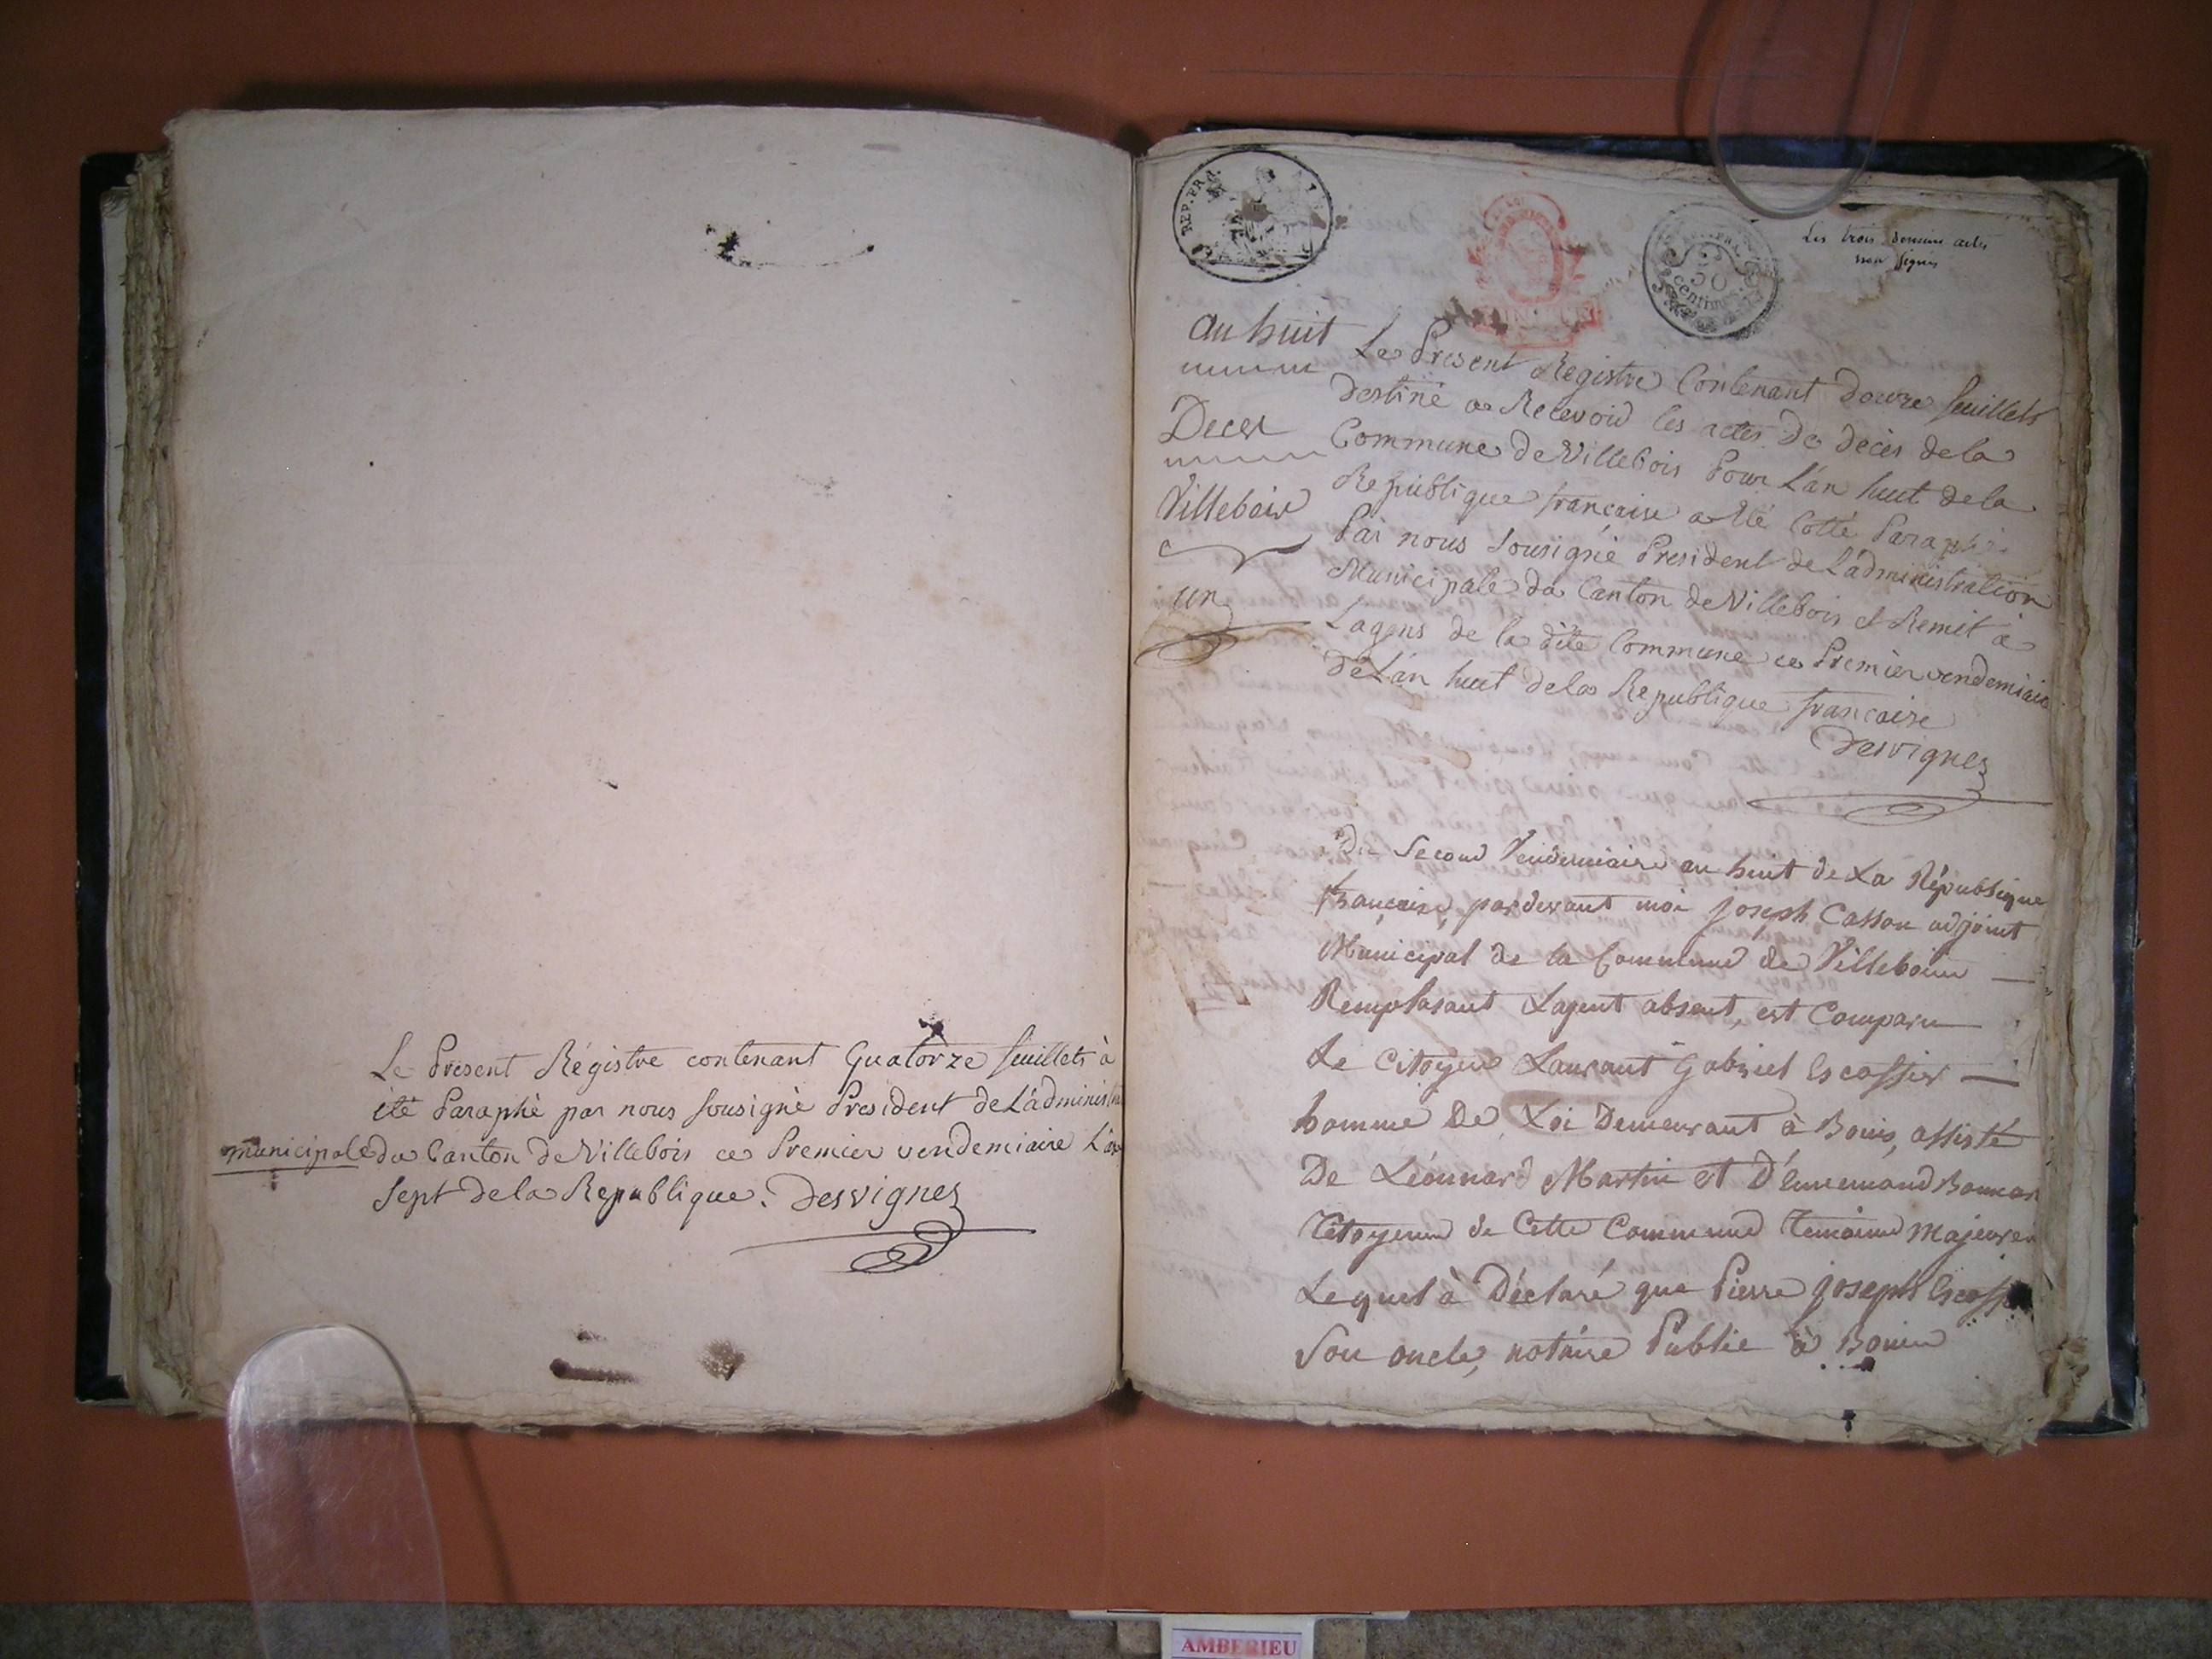 Le Present Régistre contenant Quatorze feuillets à
été Paraphé par nous sousigné President de L'administra
municipale du Canton de Villebois ce Premier vendemiaire L'an
Sept de la Republique. Desvignes
REP. FRA.
50
centimes
Les trois derniers actes
non signés
an huit
Deces
Villebois
un
Le Present Registre Contenant douze feuillets
destiné a Recevoir les actes de décès de la
Commune de Villebois Pour L'an huit de la
Republique française a été Cotté Paraphé
Par nous Sousigné President de L'administration
Municipale du Canton de Villebois et Remit à
Lagens de la dite Commune ce Premier vendemiaire
de L'an huit de la Republique française
Desvignes
Du Second Vendemiaire an huit de La République
française, pardevant moi joseph Casson adjoint
Municipal de la Commune de Villebois
Remplasant Lagent absent, est Comparu
Le Citoyen Laurant Gabriel Escoffier
homme De Loi Demeurant à Bouis, assisté
De Léonnard Martin et D'Ennemond Bonnar
Citoyens de Cette Commune Temoins Majeurs
Lequel à Déclaré que Pierre joseph Escoff
Son oncle, notaire Public à Bouis
AMBERIEU